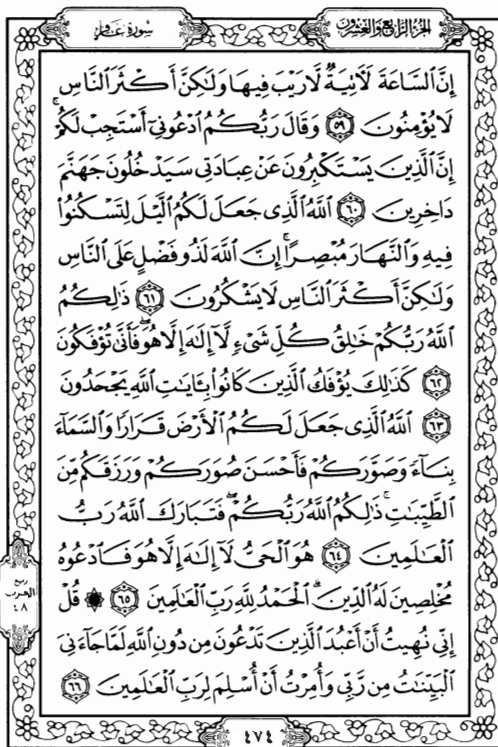 سورة غافر
الجزء الرابع والعشرون
إِنَّ ٱلسَّاعَةَ لَـَٔاتِيَةٌ لَّا رَيْبَ فِيهَا وَلَـٰكِنَّ أَكْثَرَ ٱلنَّاسِ
لَا يُؤْمِنُونَ ٥٩ وَقَالَ رَبُّكُمُ ٱدْعُونِىٓ أَسْتَجِبْ لَكُمْ ۚ
إِنَّ ٱلَّذِينَ يَسْتَكْبِرُونَ عَنْ عِبَادَتِى سَيَدْخُلُونَ جَهَنَّمَ
دَاخِرِينَ ٦٠ ٱللَّهُ ٱلَّذِى جَعَلَ لَكُمُ ٱلَّيْلَ لِتَسْكُنُوا۟
فِيهِ وَٱلنَّهَارَ مُبْصِرًا ۚ إِنَّ ٱللَّهَ لَذُو فَضْلٍ عَلَى ٱلنَّاسِ
وَلَـٰكِنَّ أَكْثَرَ ٱلنَّاسِ لَا يَشْكُرُونَ ٦١ ذَٰلِكُمُ
ٱللَّهُ رَبُّكُمْ خَـٰلِقُ كُلِّ شَىْءٍ لَّآ إِلَـٰهَ إِلَّا هُوَ ۖ فَأَنَّىٰ تُؤْفَكُونَ
٦٢ كَذَٰلِكَ يُؤْفَكُ ٱلَّذِينَ كَانُوا۟ بِـَٔايَـٰتِ ٱللَّهِ يَجْحَدُونَ
٦٣ ٱللَّهُ ٱلَّذِى جَعَلَ لَكُمُ ٱلْأَرْضَ قَرَارًا وَٱلسَّمَآءَ
بِنَآءً وَصَوَّرَكُمْ فَأَحْسَنَ صُوَرَكُمْ وَرَزَقَكُم مِّنَ
ٱلطَّيِّبَـٰتِ ۚ ذَٰلِكُمُ ٱللَّهُ رَبُّكُمْ ۖ فَتَبَارَكَ ٱللَّهُ رَبُّ
ٱلْعَـٰلَمِينَ ٦٤ هُوَ ٱلْحَىُّ لَآ إِلَـٰهَ إِلَّا هُوَ فَٱدْعُوهُ
مُخْلِصِينَ لَهُ ٱلدِّينَ ۗ ٱلْحَمْدُ لِلَّهِ رَبِّ ٱلْعَـٰلَمِينَ ٦٥ ۞ قُلْ
إِنِّى نُهِيتُ أَنْ أَعْبُدَ ٱلَّذِينَ تَدْعُونَ مِن دُونِ ٱللَّهِ لَمَّا جَآءَنِىَ
ٱلْبَيِّنَـٰتُ مِن رَّبِّى وَأُمِرْتُ أَنْ أُسْلِمَ لِرَبِّ ٱلْعَـٰلَمِينَ ٦٦
ربع
الحزب
٤٨
٤٧٤